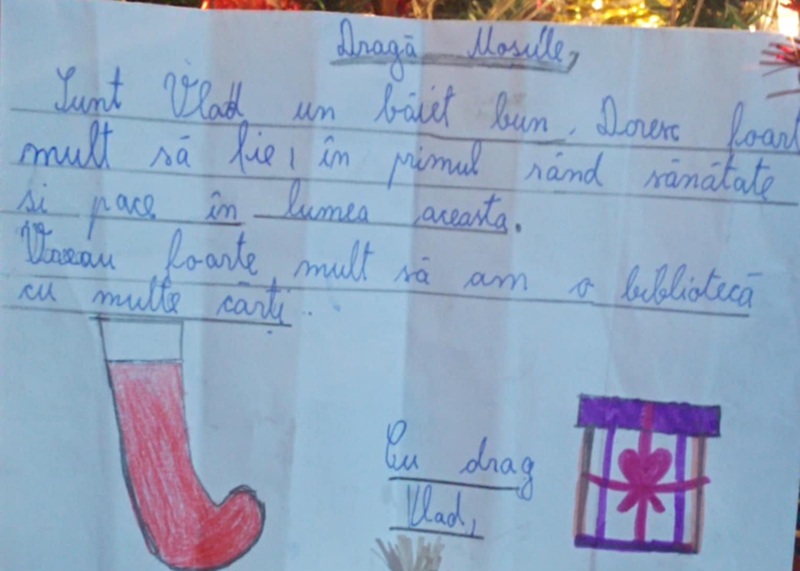 Dragă Mosule,
Sunt Vlad un băiet bun, Doresc foart
mult să fie, în primul rând sănătate
si pace în lumea aceasta.
Vreau foarte mult să am o bibliotecă
cu multe cărți..
Cu drag
Vlad,